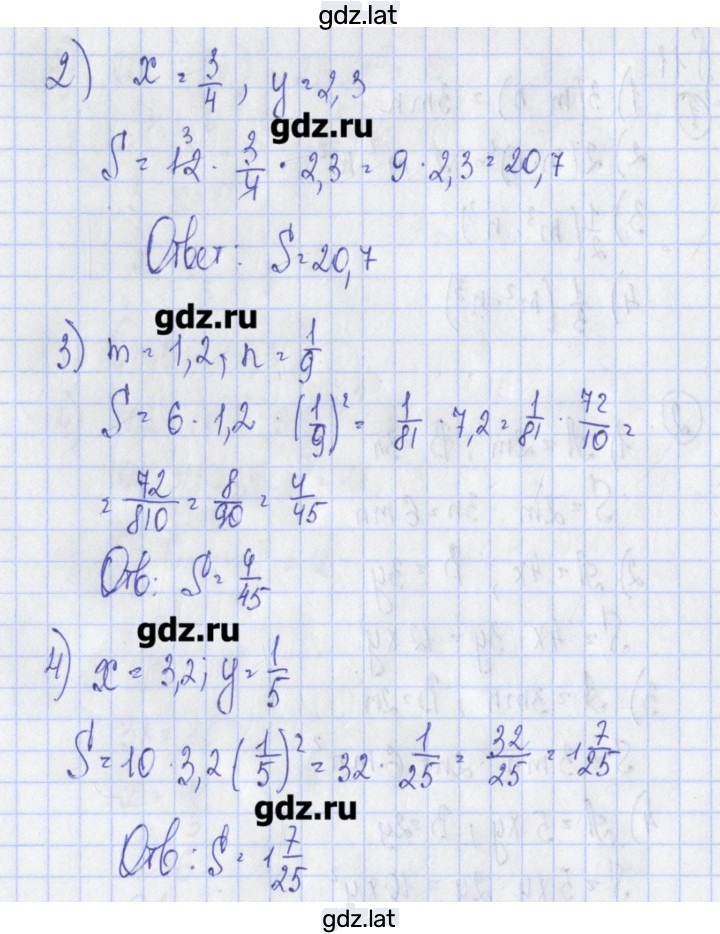 gdz.lat
2) x = 3/4, y = 2,3
gdz.ru
S = 12 · 3/4 · 2,3 = 9 · 2,3 = 20,7
3
Ответ: S = 20,7
gdz.ru
3) m = 1,2; n = 1/9
S = 6 · 1,2 · (1/9)² = 1/81 · 7,2 = 1/81 · 72/10 =
= 72/810 = 8/90 = 4/45
Отв: S = 4/45
gdz.ru
4) x = 3,2; y = 1/5
S = 10 · 3,2 (1/5)² = 32 · 1/25 = 32/25 = 1 7/25
gdz.ru
Отв: S = 1 7/25
gdz.lat